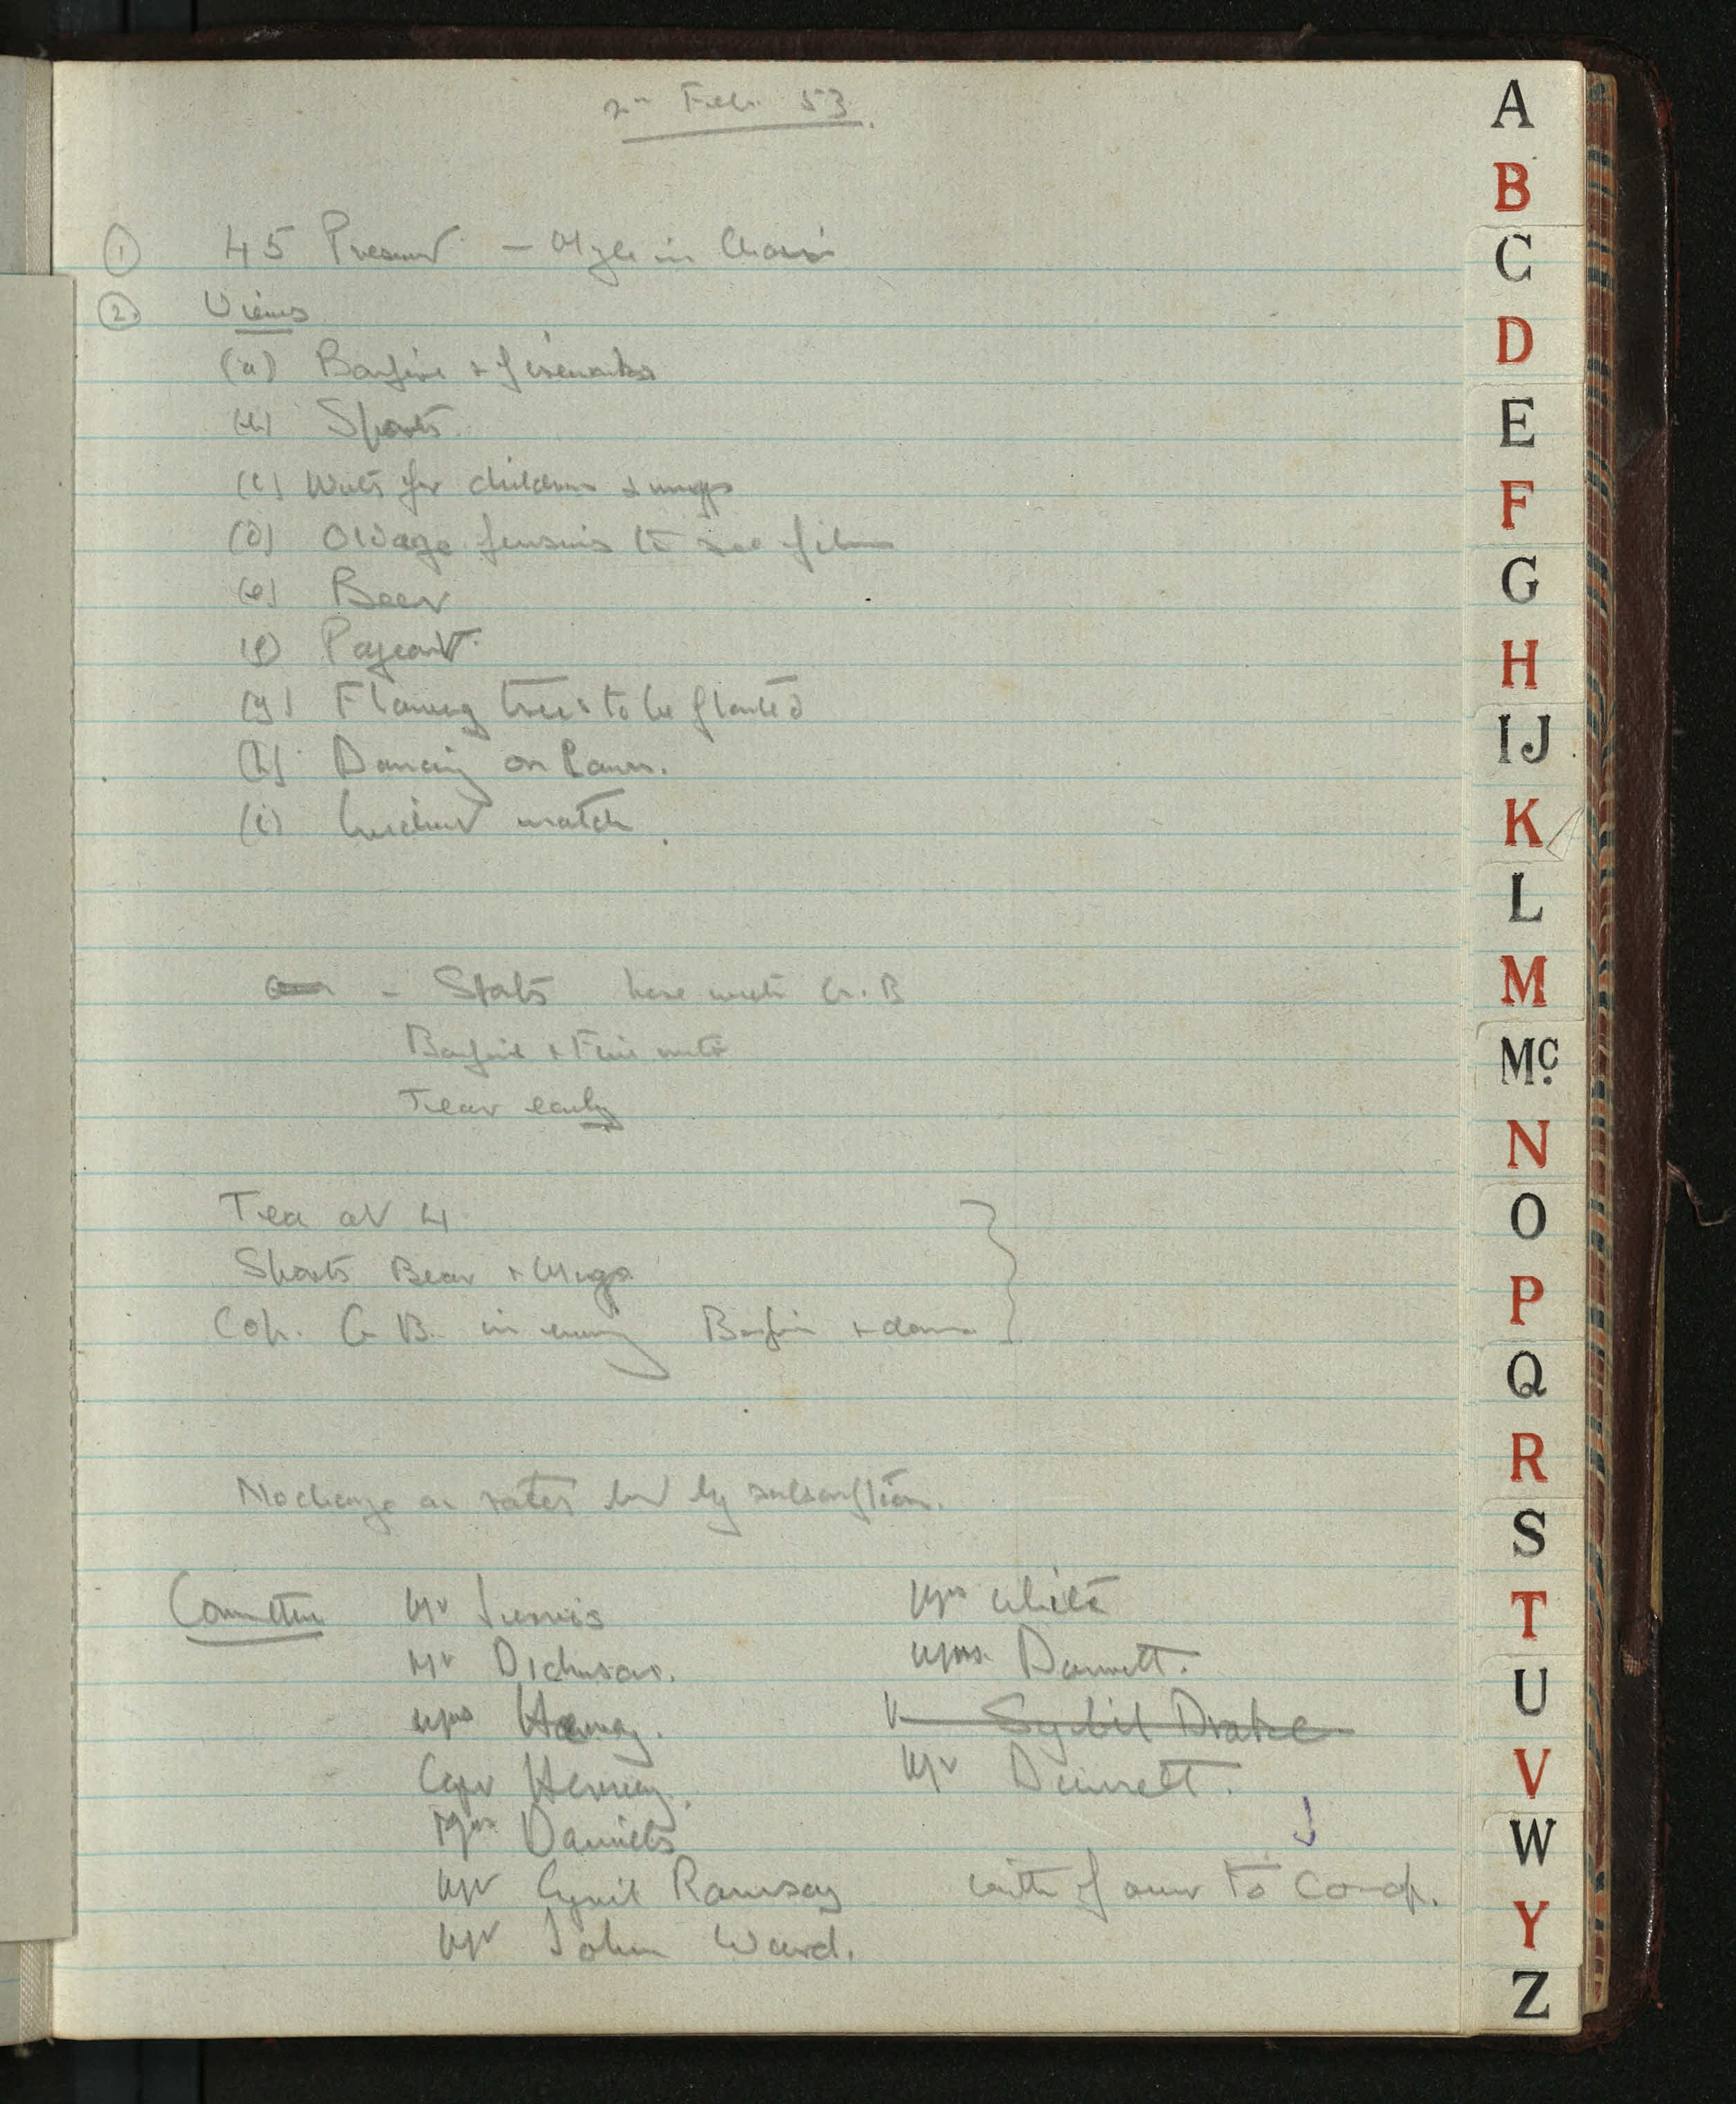 2nd Feb. 53.
① 45 Present - in Chair
② Views
(a) Bonfire + fireworks
(b) Sports.
(c) for children + mugs
(d) Old age to see film
(e) Beer
(f) Pageant.
(g) trees to be planted
(h) Dancing on Lawn.
(i) Cricket match.
- Sports here with G.B
Bonfire +
early
Tea at 4
Sports Beer + Mugs
G B. in evening Bonfire + dance
No charge on rates but by subscription.
Committee Mr Mrs White
Mr Dickinson. Mrs.
Mrs Harvey. Sybil Drake
Capt Mr
Mrs Daniels
Mr Cyril Ramsay with power to Co-op.
Mr John Ward.
A
B
C
D
E
F
G
H
IJ
K
L
M
Mc
N
O
P
Q
R
S
T
U
V
W
Y
Z